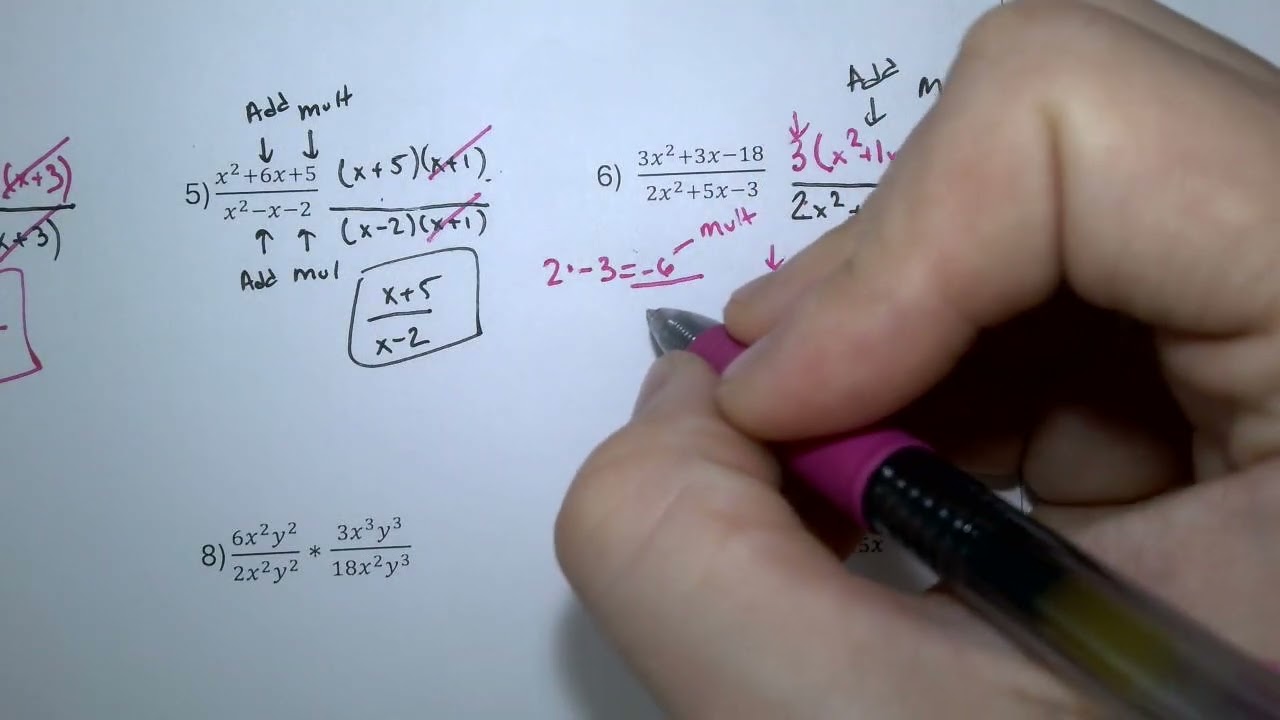 (x+3)
x+3)
Add mult
5) x²+6x+5 / x²−x−2
(x+5)(x+1)
(x-2)(x+1)
Add mul
x+5
x-2
6) 3x²+3x−18 / 2x²+5x−3
Add
3(x²+1
2x²+
mult
2·-3=-6
8) 6x²y² / 2x²y² * 3x³y³ / 18x²y³
5x